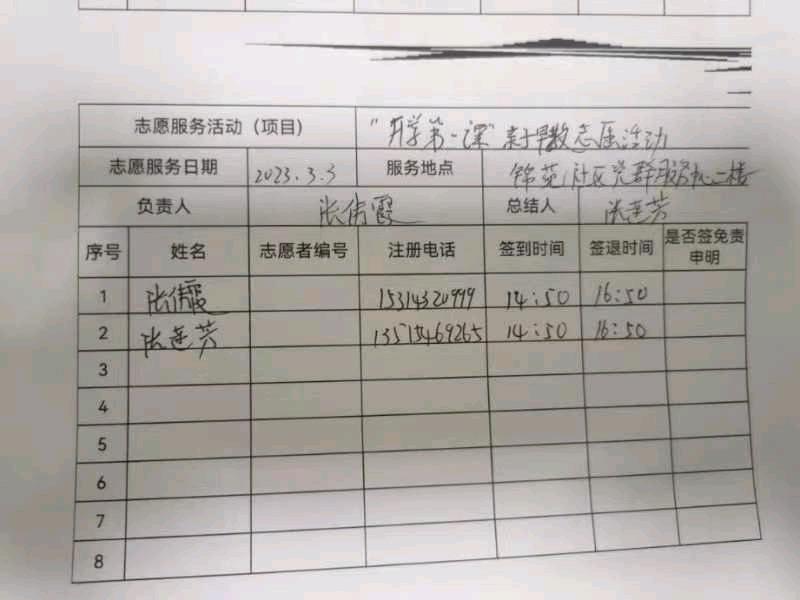 志愿服务活动（项目） "开学第一课" 志愿活动
志愿服务日期 2023.3.3 服务地点 锦苑社区党群服务中心二楼
负责人 张倩霞 总结人 张莲芳
序号 姓名 志愿者编号 注册电话 签到时间 签退时间 是否签免责申明
1 张倩霞 15314320999 14:50 16:50
2 张莲芳 13515469265 14:50 16:50
3
4
5
6
7
8